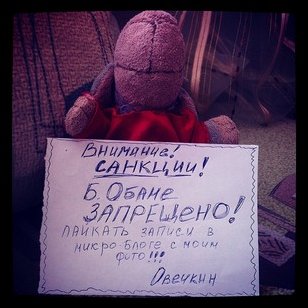 Внимание!
САНКЦИИ!
Б. Обаме
ЗАПРЕЩЕНО!
ЛАЙКАТЬ ЗАПИСИ В
микро-блоге с моим
фото!!!
Овечкин